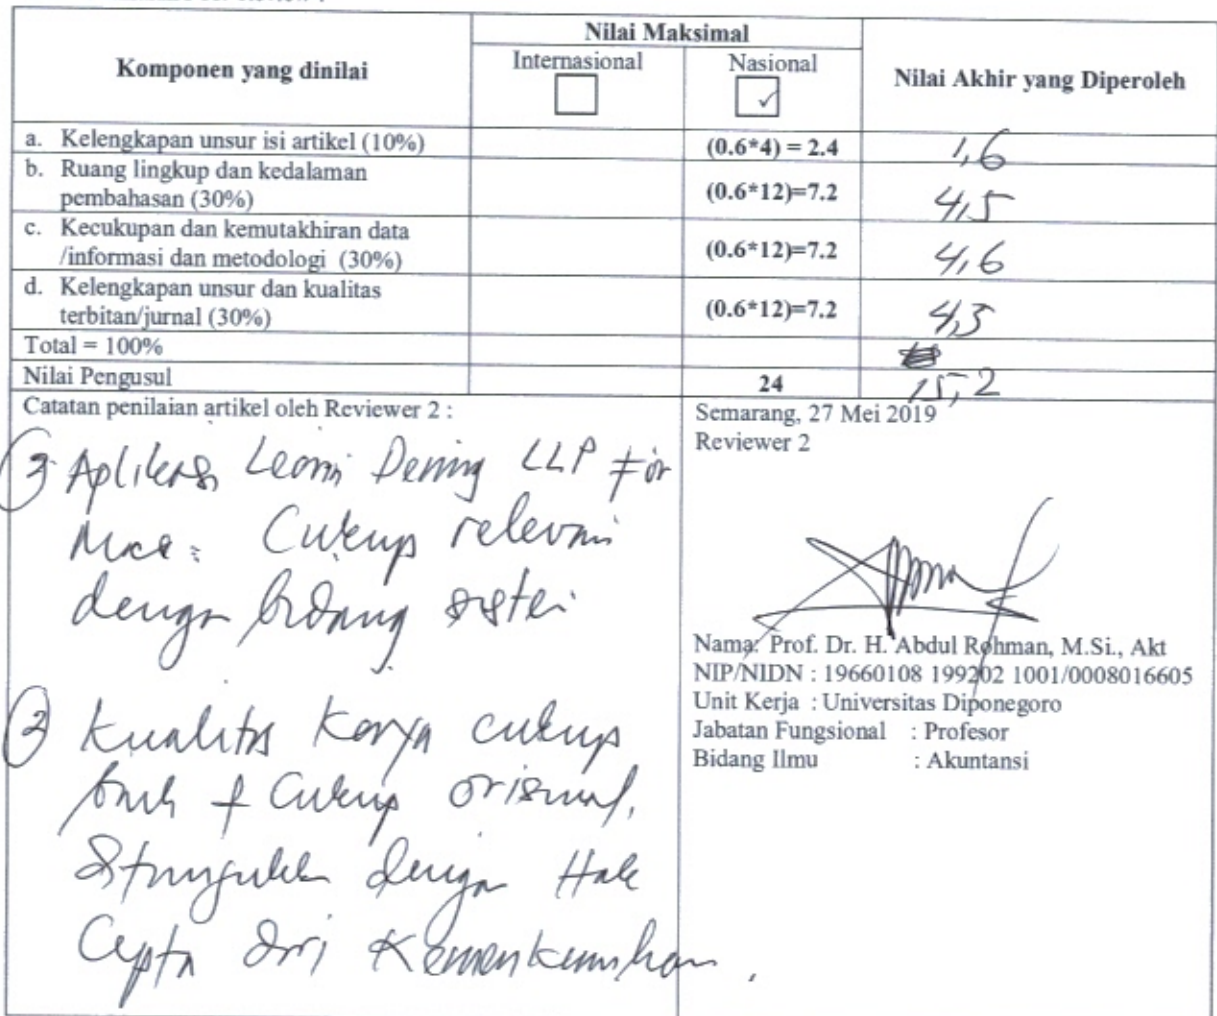 Nilai Maksimal
Komponen yang dinilai
Internasional
Nasional
Nilai Akhir yang Diperoleh
✓
a. Kelengkapan unsur isi artikel (10%) (0.6*4) = 2.4 1,6
b. Ruang lingkup dan kedalaman
pembahasan (30%) (0.6*12)=7.2 4,5
c. Kecukupan dan kemutakhiran data
/informasi dan metodologi (30%) (0.6*12)=7.2 4,6
d. Kelengkapan unsur dan kualitas
terbitan/jurnal (30%) (0.6*12)=7.2 4,5
Total = 100%
Nilai Pengusul 24 15,2
Catatan penilaian artikel oleh Reviewer 2 :
Aplikasi LLP For
Cukup relevan
dengan bidang
2 Kualitas Karya cukup
baik + Cukup orisinal,
dengan Hak
Cipta dri Kemenkumham.
Semarang, 27 Mei 2019
Reviewer 2
Nama: Prof. Dr. H. Abdul Rohman, M.Si., Akt
NIP/NIDN : 19660108 199202 1001/0008016605
Unit Kerja : Universitas Diponegoro
Jabatan Fungsional : Profesor
Bidang Ilmu : Akuntansi